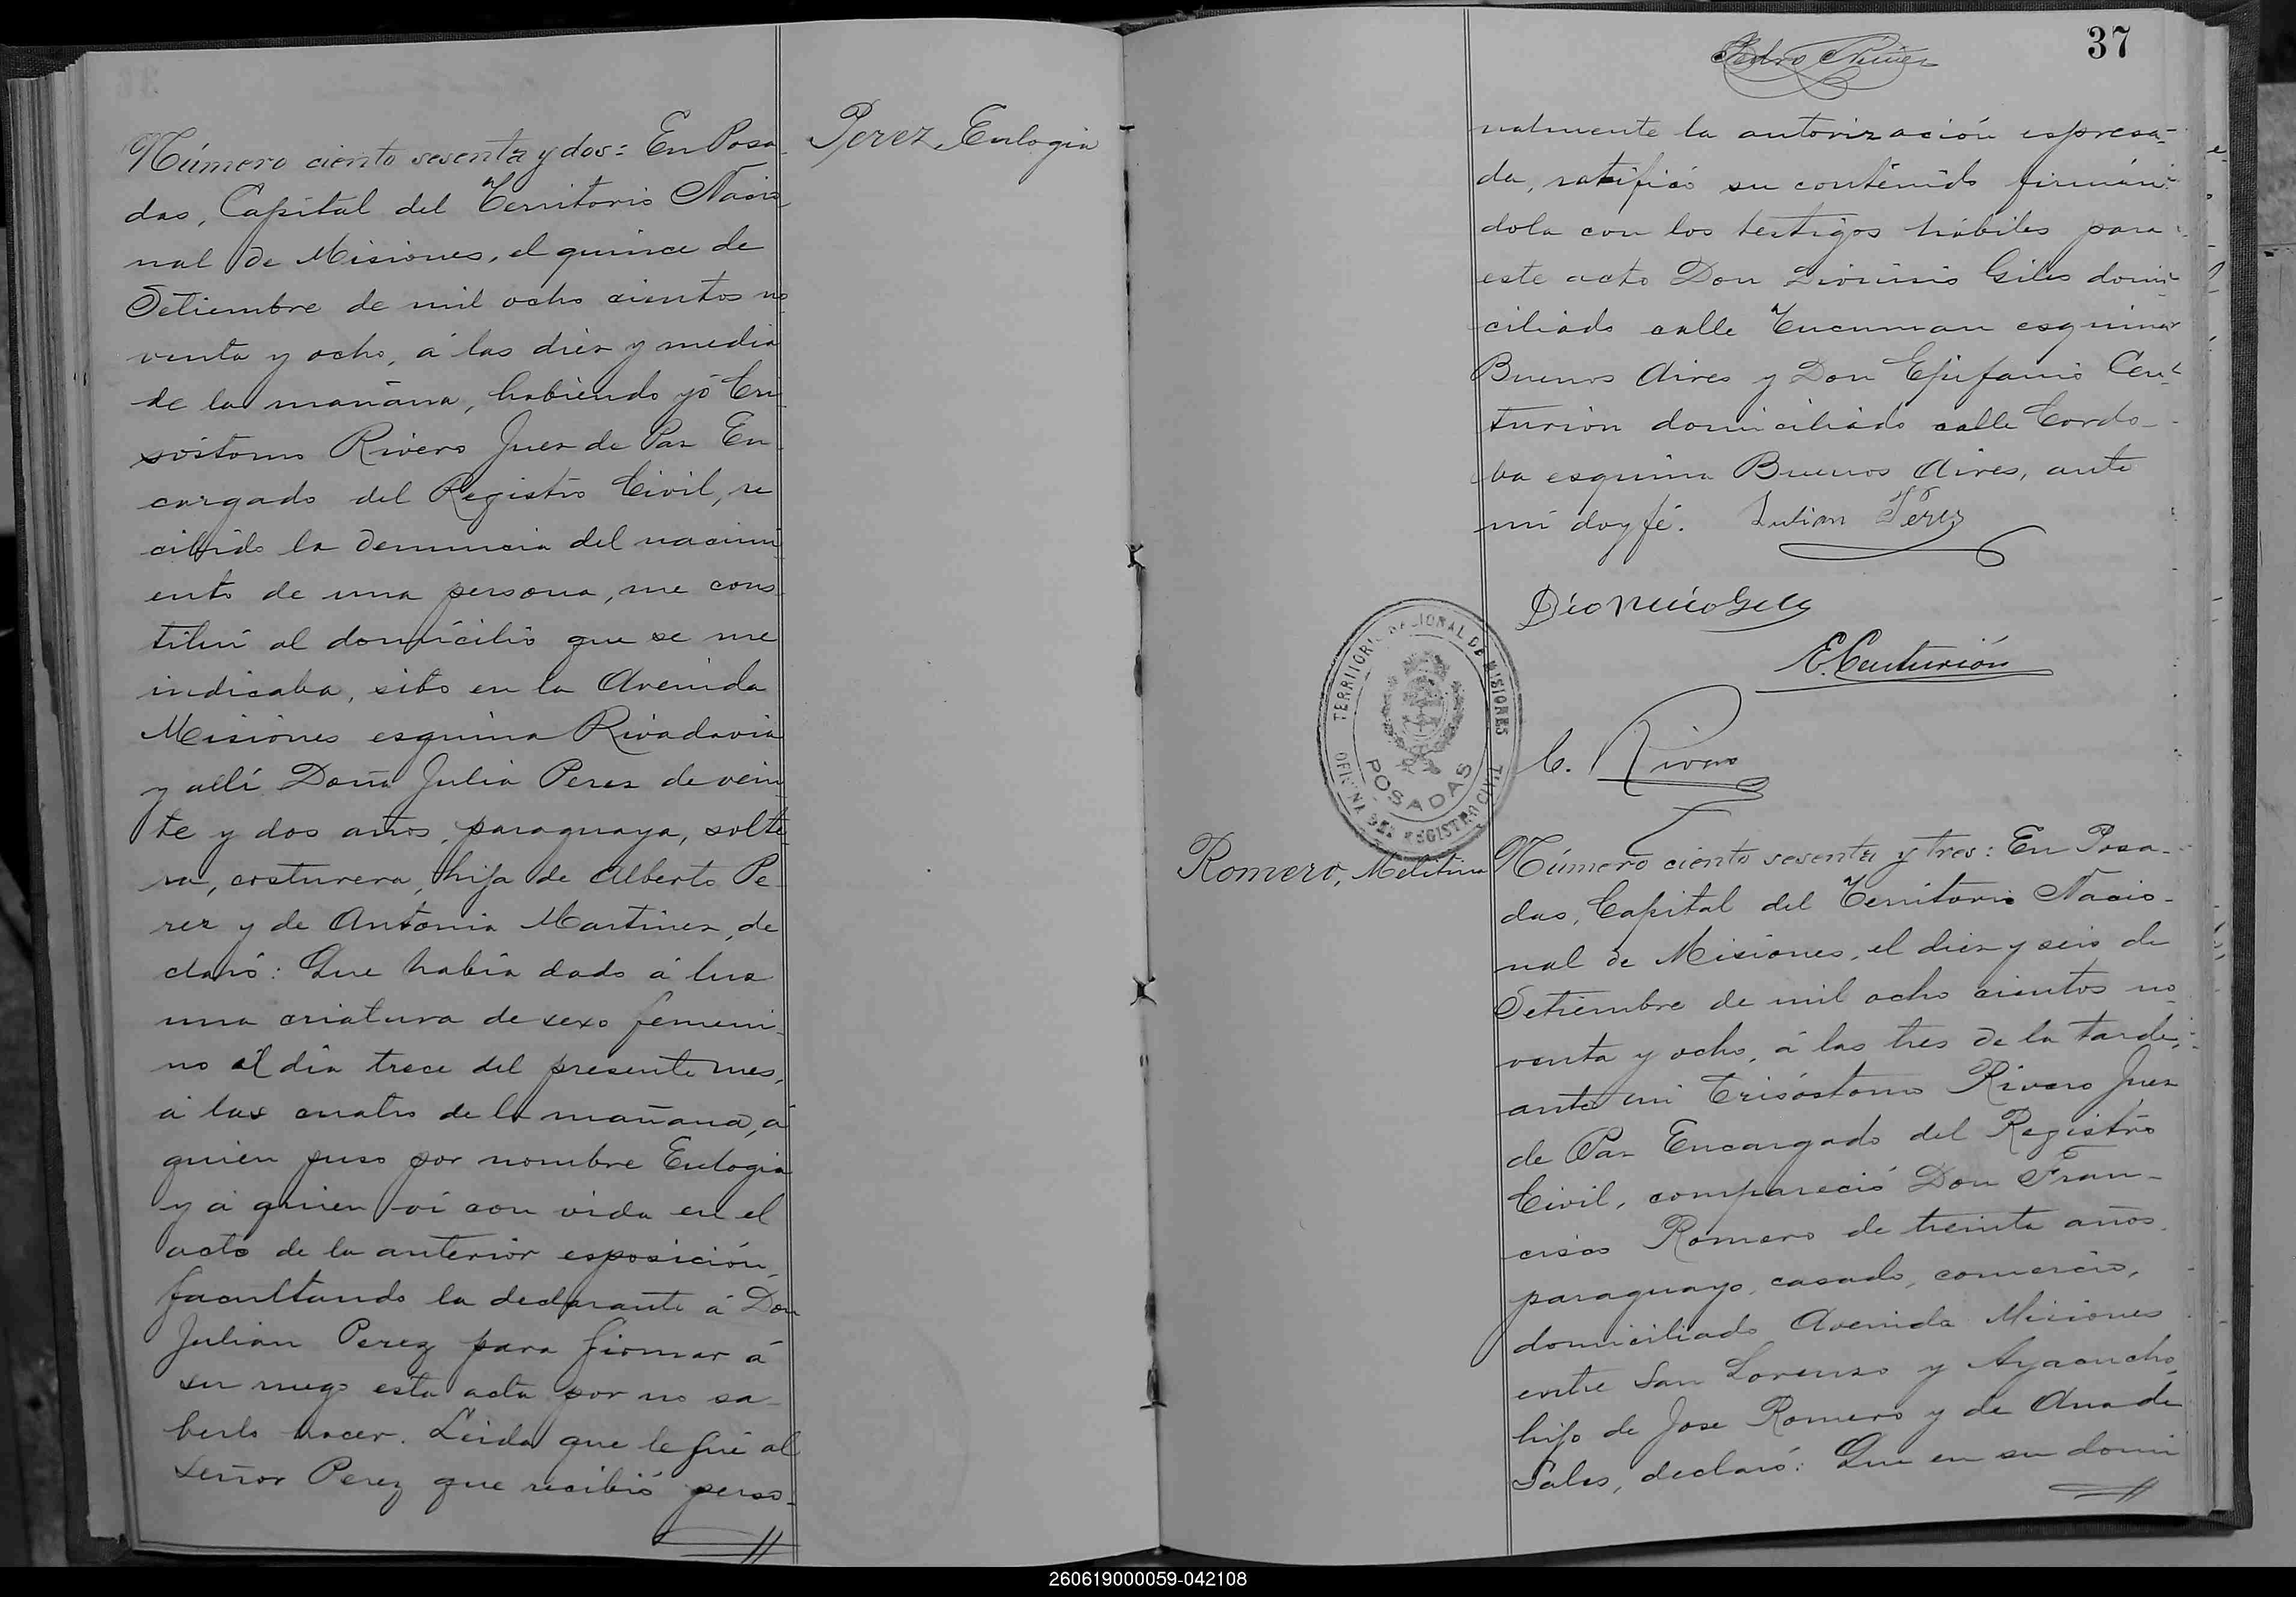 Número ciento sesenta y dos: En Posa
das, Capital del Territorio Nacio
nal de Misiones, el quince de
Setiembre de mil ocho cientos no
venta y ocho, á las diez y media
de la mañana, habiendo yó Cri
sóstomo Rivero Juez de Paz En
cargado del Registro Civil, re
cibido la denuncia del nacimi
ento de una persona, me cons
tituí al domicilio que se me
indicaba, sito en la Avenida
Misiones esquina Rivadavia
y allí Doña Julia Perez de vein
te y dos años, paraguaya, solte
ra, costurera, hija de Alberto Pe
rez y de Antonia Martinez, de
claró: Que había dado á luz
una criatura de sexo femeni
no el día trece del presente mes,
á las cuatro de la mañana, á
quien puso por nombre Eulogia
y á quien ví con vida en el
acto de la anterior esposición,
facultando la declarante á Don
Julian Perez para firmar á
su ruego esta acta por no sa
berlo hacer. Leida que le fué al
Señor Perez que recibió perso-
Perez, Eulogia
37
Pedro Nuñez
nalmente la autorización espresa-
da, ratificó su contenido firmán-
dola con los testigos hábiles para
este acto Don Dionisio Giles domi-
ciliado calle Tucuman esquina
Buenos Aires y Don Epifanio Cen-
turión domiciliado calle Cordo-
ba esquina Buenos Aires, ante
mí doy fé. Julian Perez
Dionicio Gils
E. Centurión
C. Rivero
TERRITORIO NACIONAL DE MISIONES
POSADAS
OFICINA DEL REGISTRO CIVIL
Romero, Melitina
Número ciento sesenta y tres: En Posa-
das, Capital del Territorio Nacio-
nal de Misiones, el diez y seis de
Setiembre de mil ocho cientos no
venta y ocho, á las tres de la tarde,
ante mí Crisóstomo Rivero Juez
de Paz Encargado del Registro
Civil, compareció Don Fran-
cisco Romero de treinta años,
paraguayo, casado, comercio,
domiciliado Avenida Misiones
entre San Lorenzo y Ayacucho,
hijo de Jose Romero y de Ana de
Sales, declaró: Que en su domi
260619000059-042108